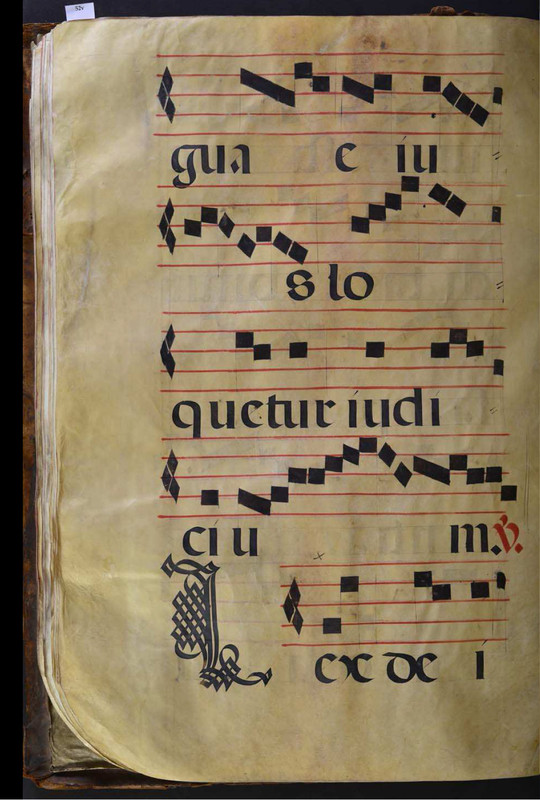 52v
gua e iu
s lo
quetur iudi
ci u m. ℣.
Lex de i